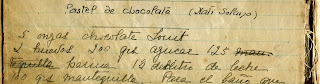 Pastel de chocolate (Mari Solaya)
5 onzas chocolate Louit
2 huevos 200 grs azucar 125
harina 1/2 cuartillo de leche
100 grs mantequilla. Para el baño que